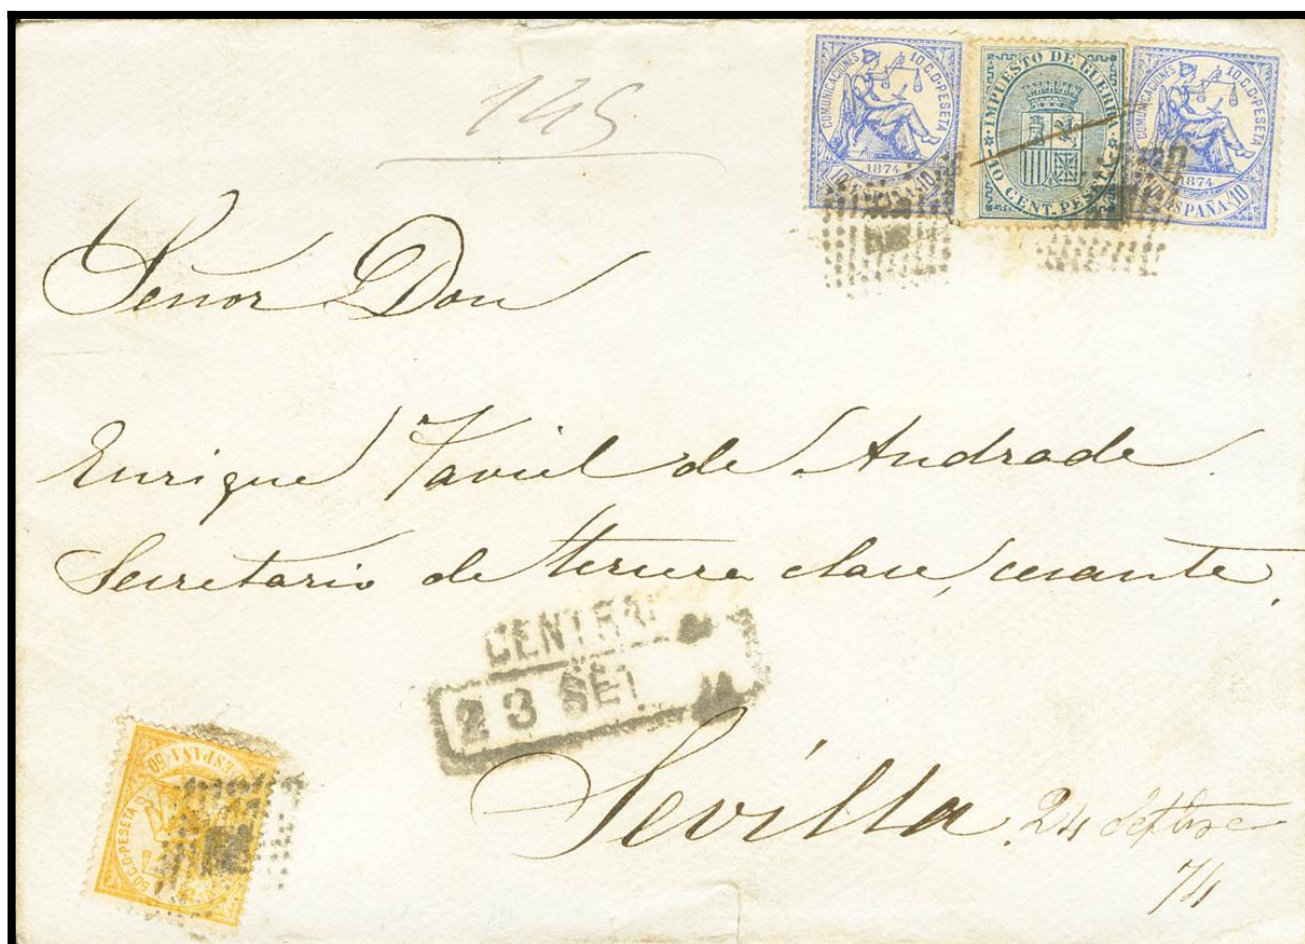 145
COMUNICACIONES 10 C.D. PESETA
1874
10 ESPAÑA 10
IMPUESTO DE GUERRA
10 CENT. PESETA
COMUNICACIONES 10 C.D. PESETA
1874
ESPAÑA 10
Señor Don
Enrique Taviel de Andrade.
Secretario de tercera clase, cesante,
CENTRAL
23 SET
ESPAÑA 60
50 C.D. PESETA
Sevilla. 24 Setbre
74